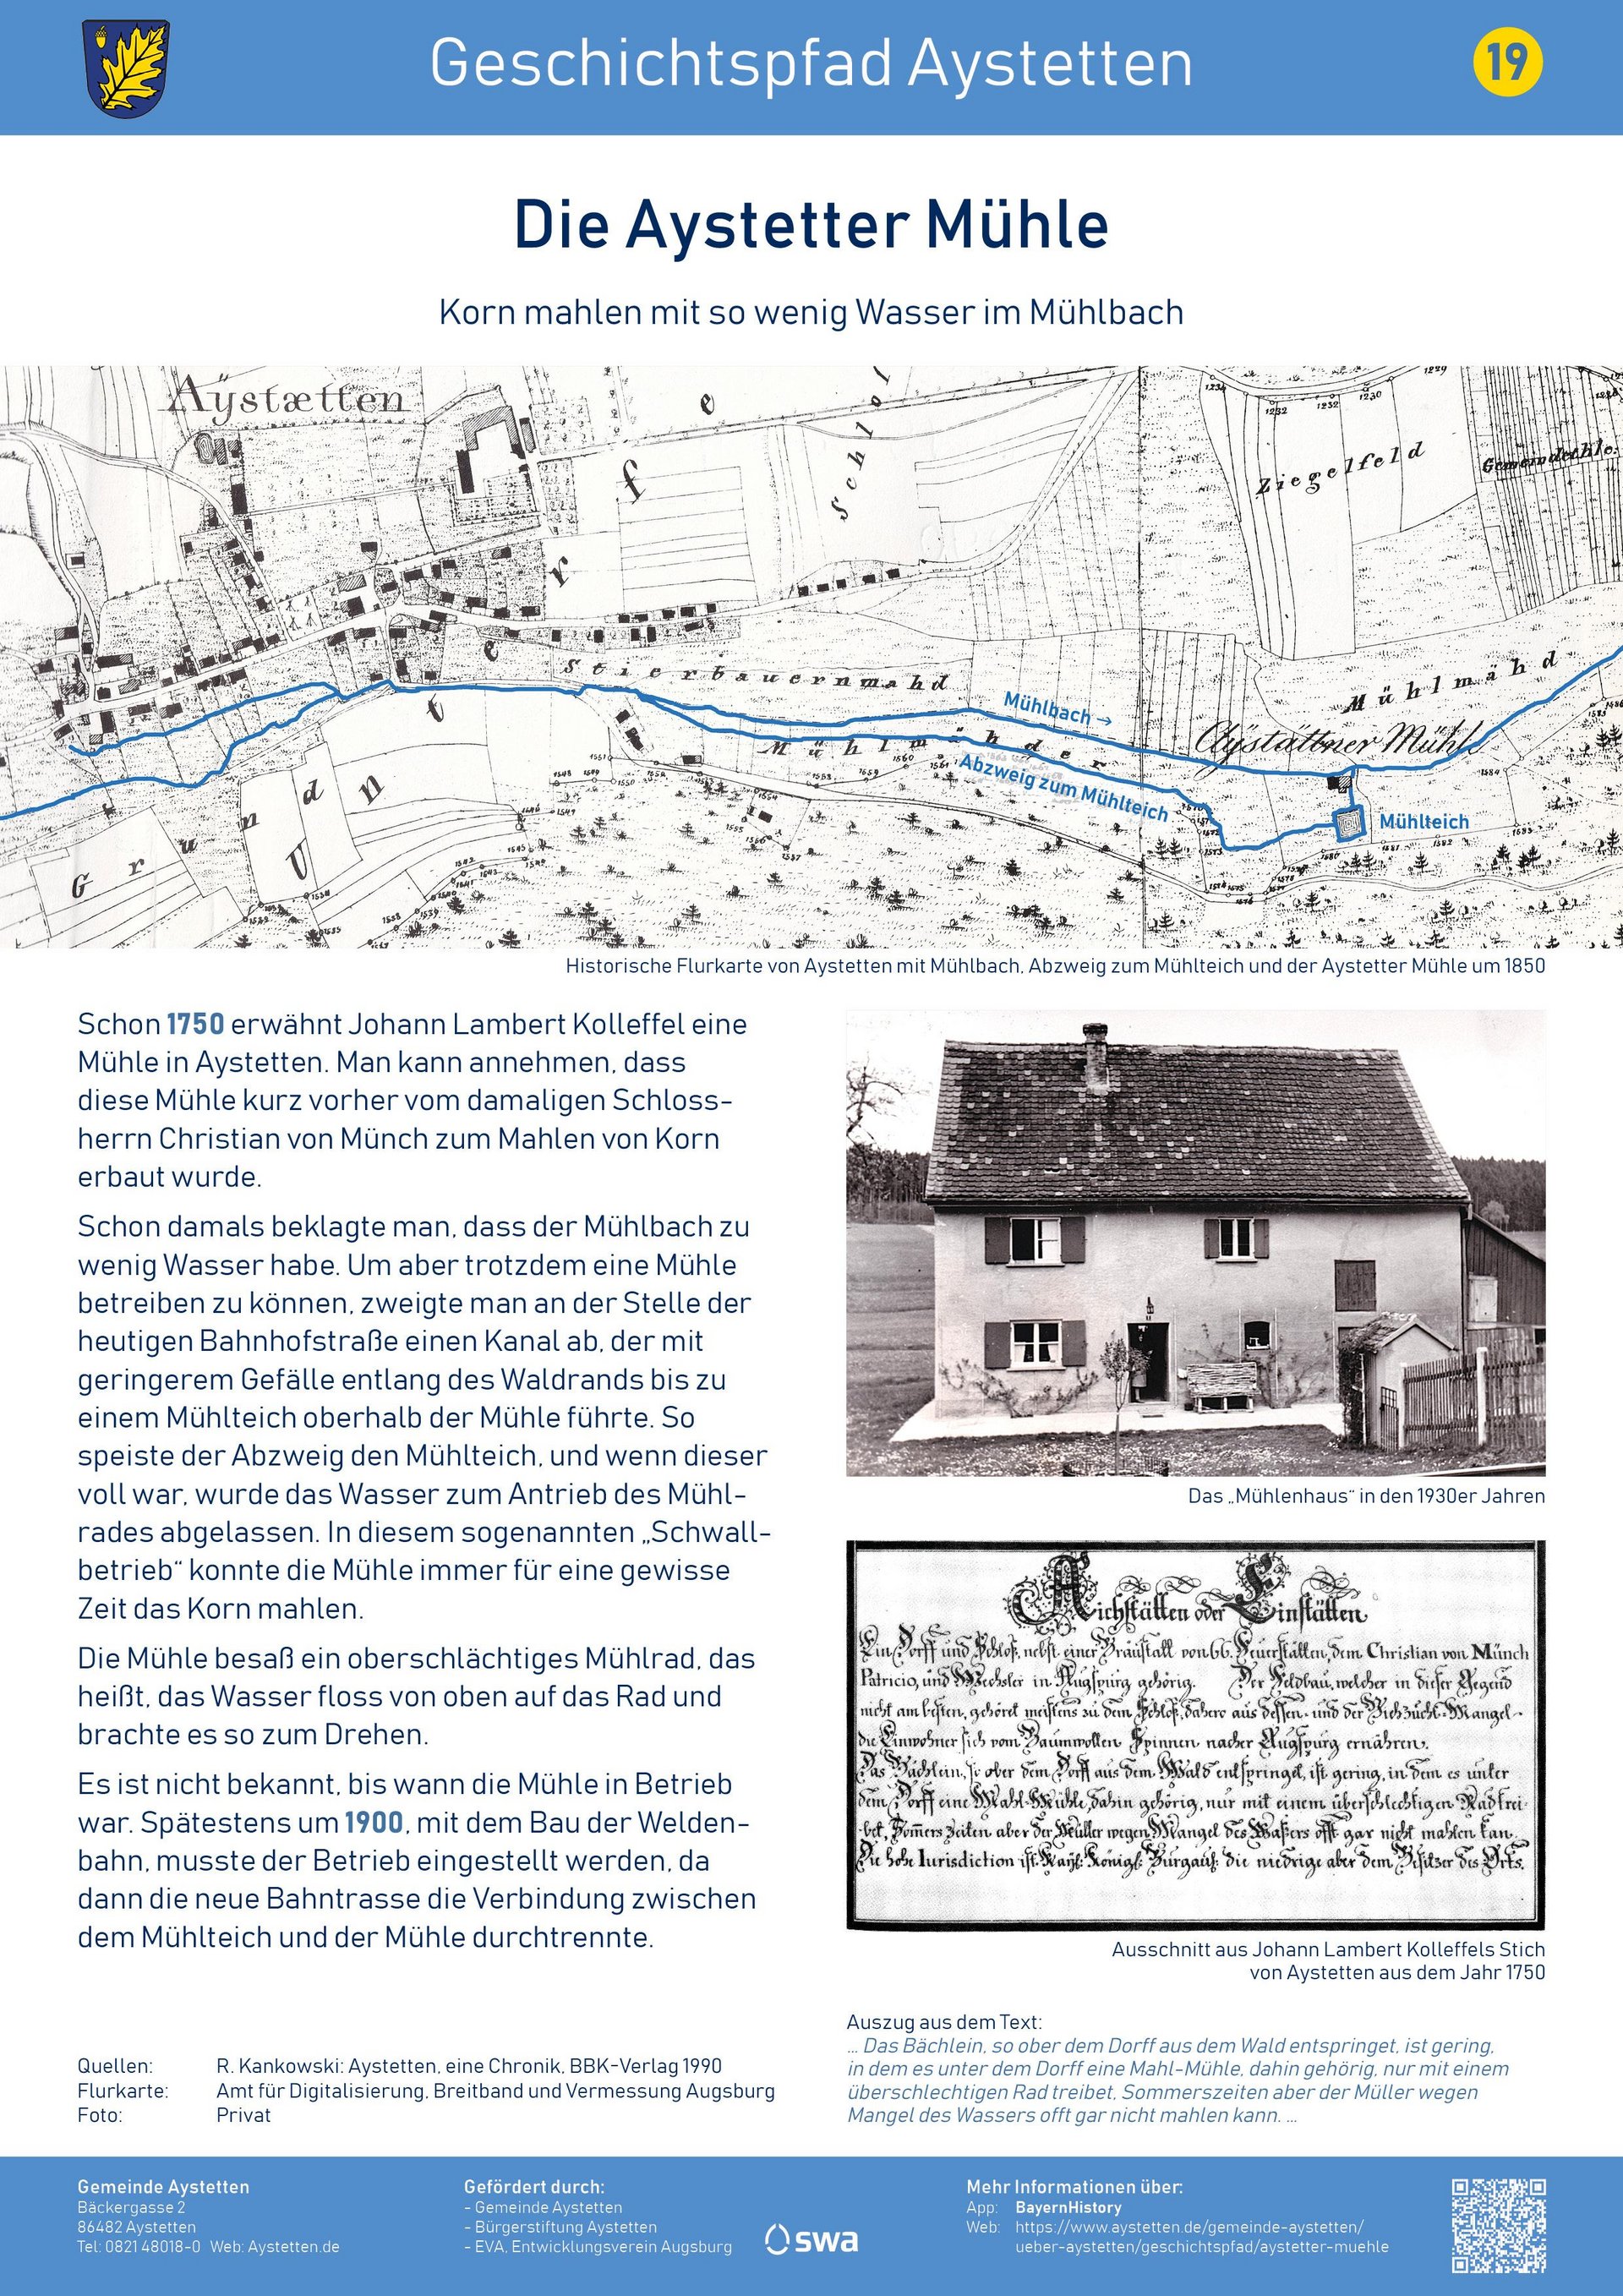 Geschichtspfad Aystetten
19
Die Aystetter Mühle
Korn mahlen mit so wenig Wasser im Mühlbach
Aÿstætten
Schlos
Ziegelfeld
Stierbauernmahd
Mühlmähd
Mühlbach →
Aÿstättner Mühle
Mühlmähder
Abzweig zum Mühlteich
Mühlteich
Unterfe
Grund
Historische Flurkarte von Aystetten mit Mühlbach, Abzweig zum Mühlteich und der Aystetter Mühle um 1850
Schon 1750 erwähnt Johann Lambert Kolleffel eine
Mühle in Aystetten. Man kann annehmen, dass
diese Mühle kurz vorher vom damaligen Schloss-
herrn Christian von Münch zum Mahlen von Korn
erbaut wurde.
Schon damals beklagte man, dass der Mühlbach zu
wenig Wasser habe. Um aber trotzdem eine Mühle
betreiben zu können, zweigte man an der Stelle der
heutigen Bahnhofstraße einen Kanal ab, der mit
geringerem Gefälle entlang des Waldrands bis zu
einem Mühlteich oberhalb der Mühle führte. So
speiste der Abzweig den Mühlteich, und wenn dieser
voll war, wurde das Wasser zum Antrieb des Mühl-
rades abgelassen. In diesem sogenannten „Schwall-
betrieb“ konnte die Mühle immer für eine gewisse
Zeit das Korn mahlen.
Die Mühle besaß ein oberschlächtiges Mühlrad, das
heißt, das Wasser floss von oben auf das Rad und
brachte es so zum Drehen.
Es ist nicht bekannt, bis wann die Mühle in Betrieb
war. Spätestens um 1900, mit dem Bau der Welden-
bahn, musste der Betrieb eingestellt werden, da
dann die neue Bahntrasse die Verbindung zwischen
dem Mühlteich und der Mühle durchtrennte.
Quellen: R. Kankowski: Aystetten, eine Chronik, BBK-Verlag 1990
Flurkarte: Amt für Digitalisierung, Breitband und Vermessung Augsburg
Foto: Privat
Das „Mühlenhaus“ in den 1930er Jahren
Aichstätten oder Einstätten
Ein Dorff und Schloß, nebst einer Bräustatt von 66. Feuerstätten, dem Christian von Münch
Patricio, und Wechsler in Augspurg gehörig. Der Feldbau, welcher in dieser Gegend
nicht am besten, gehöret meistens zu dem Schloß, dahero aus dessen- und der Viehzucht-Mangel-
die Einwohner sich vom Baumwollen Spinnen nacher Augspurg ernähren.
Das Bächlein, so ober dem Dorff aus dem Wald entspringet, ist gering, in dem es unter
dem Dorff eine Mahl-Mühle, dahin gehörig, nur mit einem überschlechtigen Rad trei-
bet, Sommers Zeiten aber der Müller wegen Mangel des Waßers offt gar nicht mahlen kan.
Die hohe Jurisdiction ist Kayß. Königl. Burgauß. die niedrige aber dem Besitzer des Orts.
Ausschnitt aus Johann Lambert Kolleffels Stich
von Aystetten aus dem Jahr 1750
Auszug aus dem Text:
... Das Bächlein, so ober dem Dorff aus dem Wald entspringet, ist gering,
in dem es unter dem Dorff eine Mahl-Mühle, dahin gehörig, nur mit einem
überschlechtigen Rad treibet, Sommerszeiten aber der Müller wegen
Mangel des Wassers offt gar nicht mahlen kann. ...
Gemeinde Aystetten
Bäckergasse 2
86482 Aystetten
Tel: 0821 48018-0 Web: Aystetten.de
Gefördert durch:
- Gemeinde Aystetten
- Bürgerstiftung Aystetten
- EVA, Entwicklungsverein Augsburg
swa
Mehr Informationen über:
App: BayernHistory
Web: https://www.aystetten.de/gemeinde-aystetten/
ueber-aystetten/geschichtspfad/aystetter-muehle